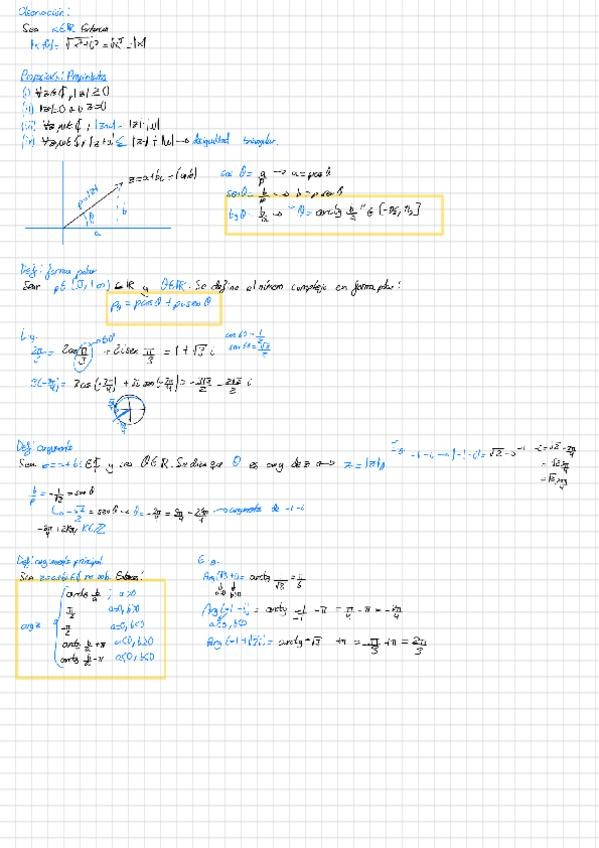 Observación:
Sea a∈ℝ. Entonces
|a+0i| = √a²+0² = √a² = |a|
Proposición: Propiedades
(i) ∀z∈ℂ, |z| ≥ 0
(ii) |z|=0 z=0
(iii) ∀z,w∈ℂ, |zw| = |z|·|w|
(iv) ∀z,w∈ℂ, |z+w| ≤ |z|+|w| → desigualdad triangular
z=a+bi=(a,b)
ρ=|z|
θ
b
a
cos θ = a/ρ → a=ρcosθ
sen θ = b/ρ → b=ρ senθ
tg θ = b/a → "θ = arctg b/a" ∈ [-π/2, π/2]
Def: forma polar
Sean ρ∈[0,+∞) ⊂ ℝ y θ∈ℝ. Se define el número complejo en forma polar:
ρθ = ρcosθ + ρisenθ
E.g.
60°
2π/3 = 2cos π/3 + 2isen π/3 = 1+√3 i
cos 60 = 1/2
sen 60 = √3/2
= cos(-3π/4) + i sen(-3π/4) =
Def: argumento
Sea z=a+bi ∈ℂ y sea θ∈ℝ. Se dice que θ es arg de z ⟺ z = |z|θ
-1-i → |-1-i| = √2
b/ρ = -1/√2 = sen θ
→ argumento de -1-i
-3π/4 + 2kπ, k∈ℤ
Def: argumento principal
Sea z=a+bi∈ℂ no nulo. Entonces:
arg z
arctg b/a ; a>0
π/2 a=0, b>0
-π/2 a=0, b<0
arctg b/a + π a<0, b≥0
arctg b/a - π a<0, b<0
E.g.
Arg(√3+i) = arctg 1/√3 = π/6
Arg(-1-i) = arctg -1/-1 - π = π/4 - π = -3π/4
a<0, b<0
Arg(-1+√3i) = arctg -√3 + π = -π/3 + π = 2π/3